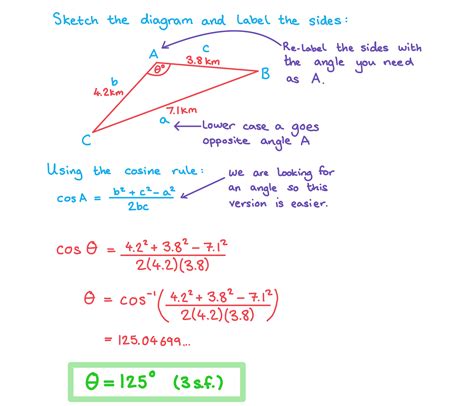 Sketch the diagram and label the sides:
A
c
3.8km
θ°
B
b
4.2km
7.1km
a
C
Re-label the sides with
the angle you need
as A.
Lower case a goes
opposite angle A
Using the cosine rule:
cos A = b² + c² - a² / 2bc
we are looking for
an angle so this
version is easier.
cos θ = 4.2² + 3.8² - 7.1² / 2(4.2)(3.8)
θ = cos⁻¹ ( 4.2² + 3.8² - 7.1² / 2(4.2)(3.8) )
= 125.04699...
θ = 125° (3 s.f.)